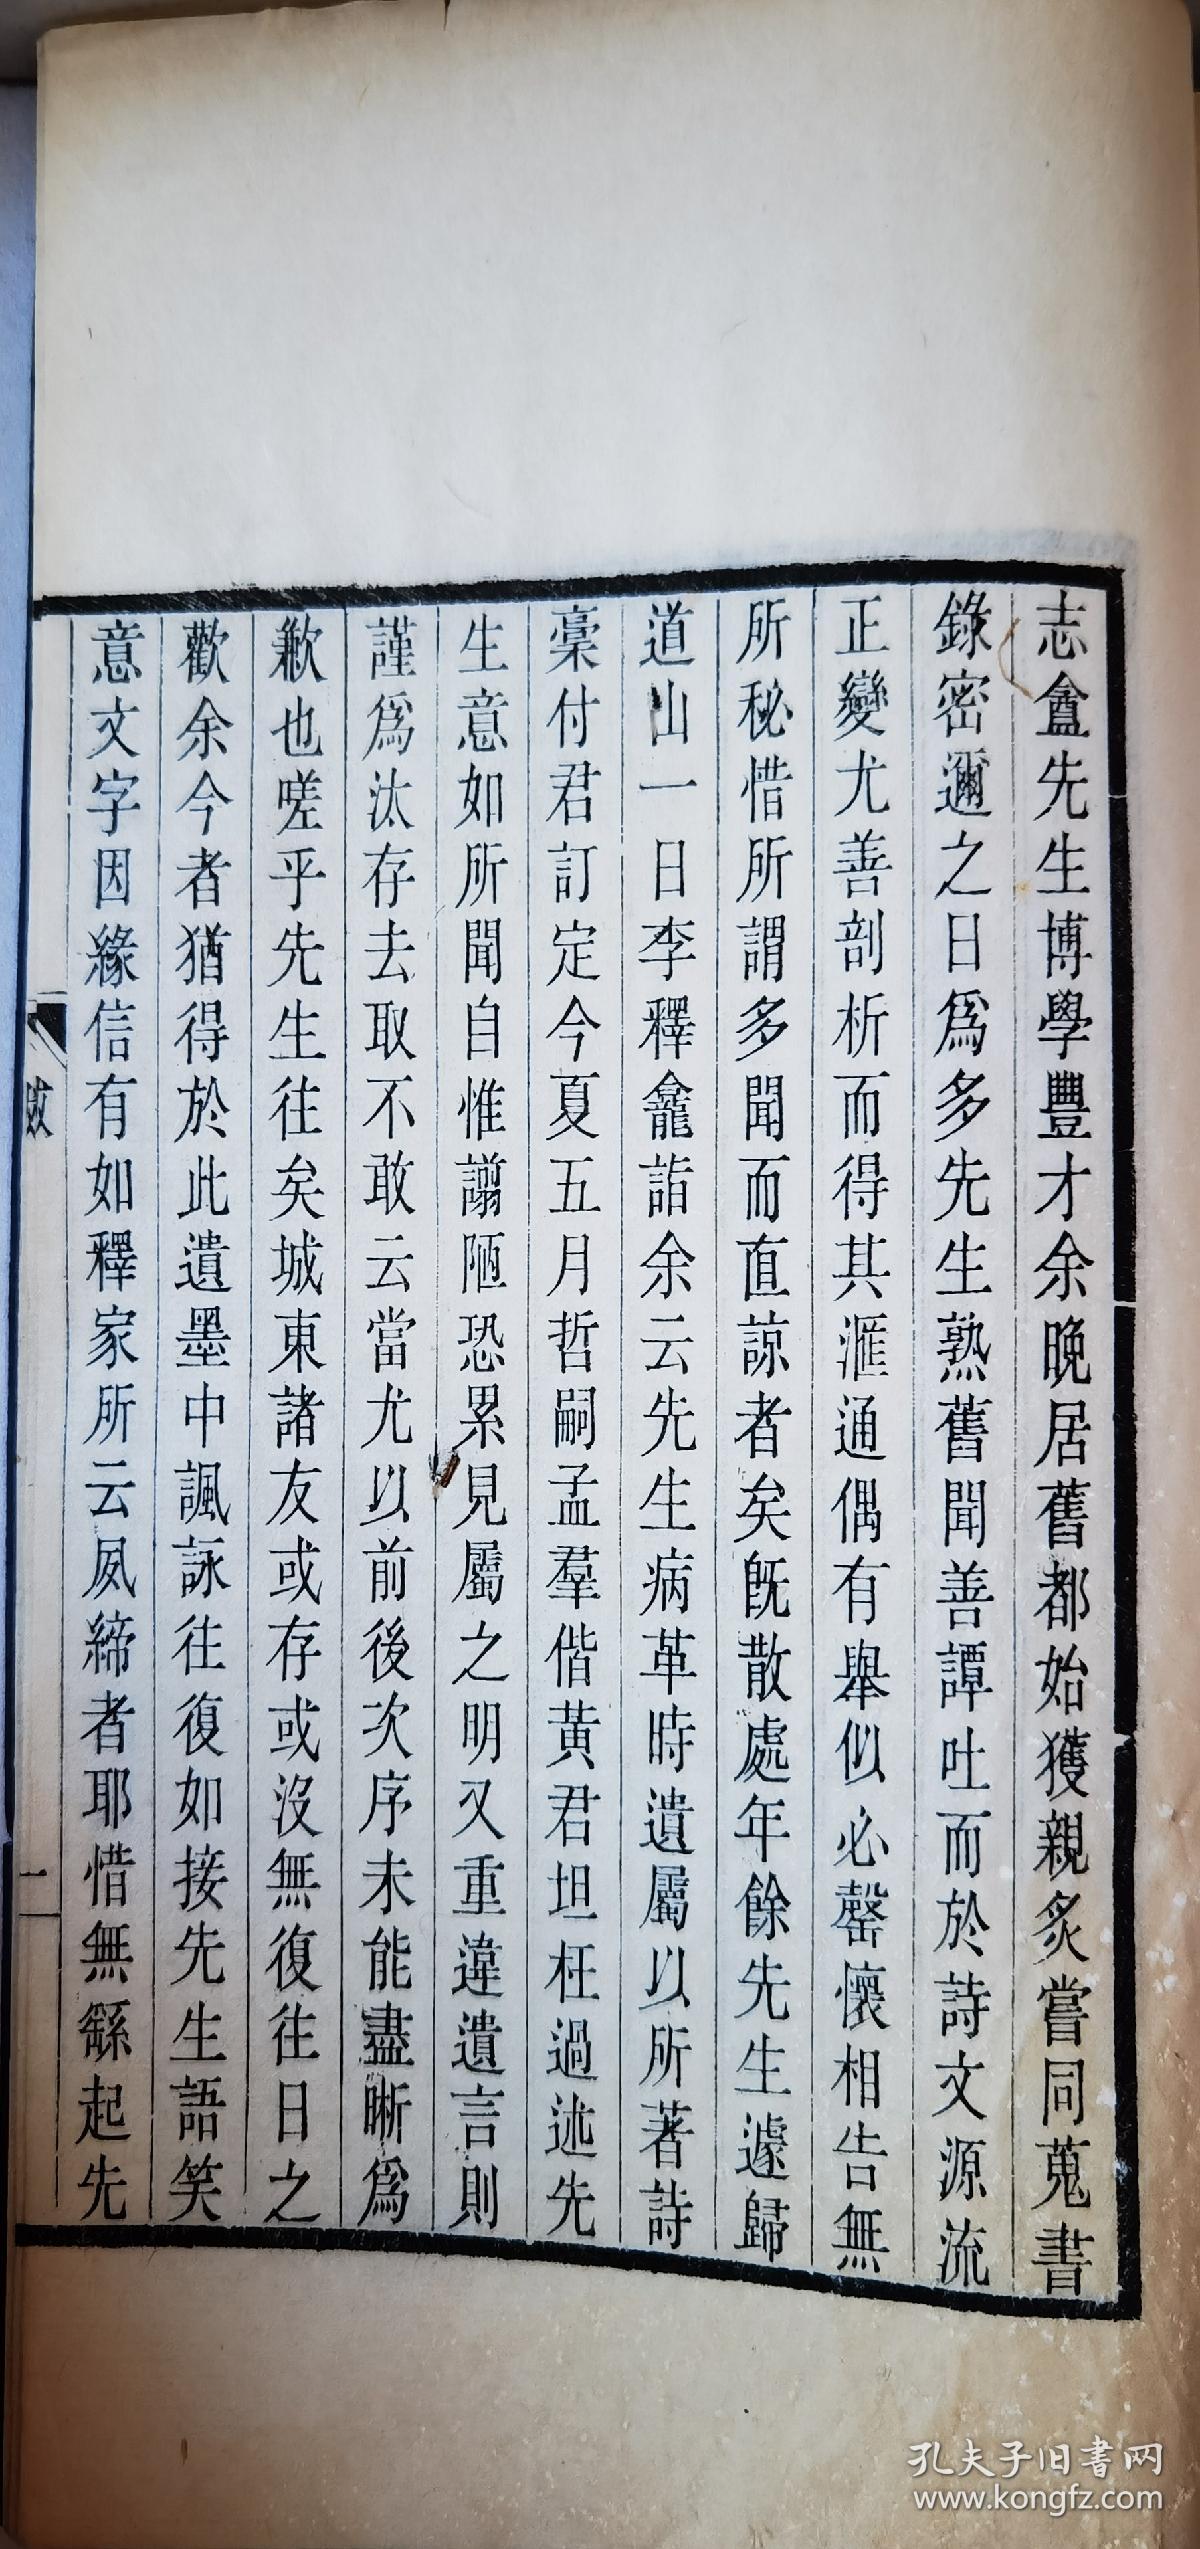 志盦先生博學豐才余晚居舊都始獲親炙嘗同蒐書
錄密邇之日爲多先生熟舊聞善譚吐而於詩文源流
正變尤善剖析而得其滙通偶有舉似必罄懷相告無
所秘惜所謂多聞而直諒者矣旣散處年餘先生遽歸
道山一日李釋龕詣余云先生病革時遺屬以所著詩
稾付君訂定今夏五月哲嗣孟羣偕黃君坦枉過述先
生意如所聞自惟謭陋恐累見屬之明又重違遺言則
謹爲汰存去取不敢云當尤以前後次序未能盡晰爲
歉也嗟乎先生往矣城東諸友或存或沒無復往日之
歡余今者猶得於此遺墨中諷詠往復如接先生語笑
意文字因緣信有如釋家所云夙締者耶惜無繇起先
跋
一
孔夫子旧书网
www.kongfz.com